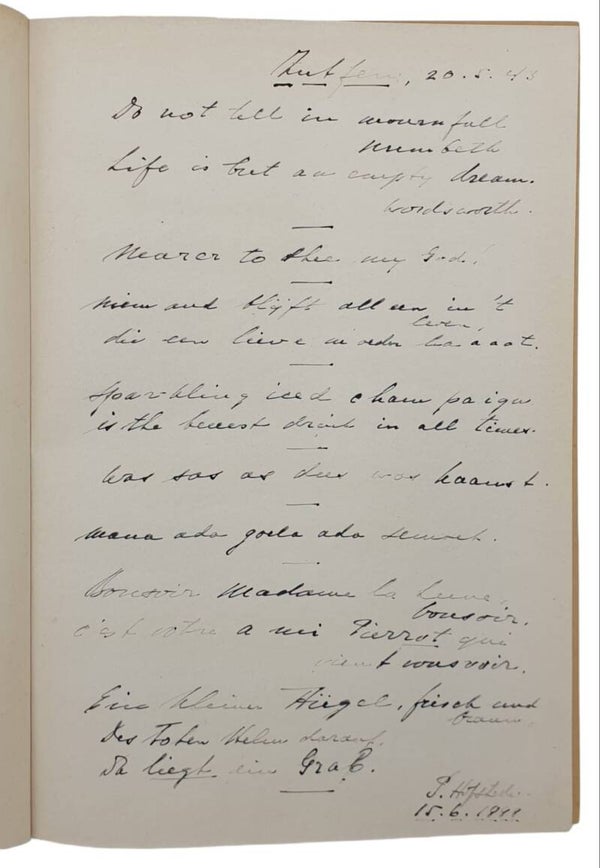 Zutfen, 20.5.43
Do not tell in mournfull
numbeth
Life is but an empty dream.
Wordsworth.
Nearer to thee my God!
Niemand blijft alleen in 't
leven,
die een lieve moeder
Sparkling iced champaign
is the beeest drink in all times.
was sas as dees was
mana ada goela ada semoet.
Bonsoir Madame la lune,
bonsoir.
c'est votre ami Pierrot qui
vient vous voir.
Ein kleiner Hügel, frisch und
braun,
Des Toten Helm darauf,
Da liegt ein Grab.
P.
15.6.